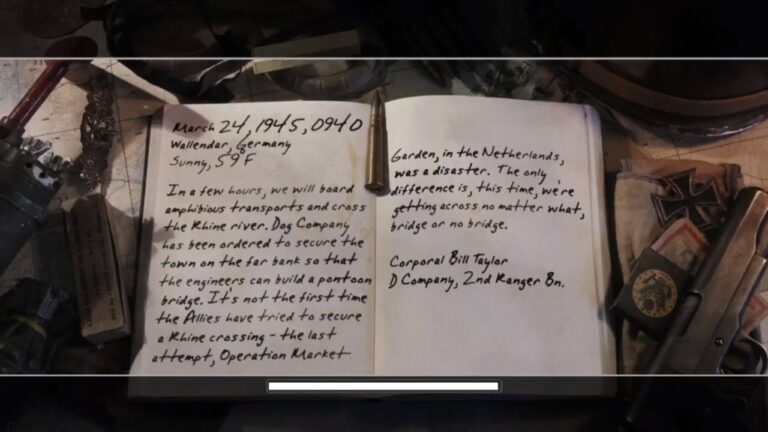 March 24, 1945, 0940
Wallendar, Germany
Sunny, 59F
In a few hours, we will board
amphibious transports and cross
the Rhine river. Dog Company
has been ordered to secure the
town on the far bank so that
the engineers can build a pontoon
bridge. It's not the first time
the Allies have tried to secure
a Rhine crossing - the last
attempt, Operation Market
Garden, in the Netherlands,
was a disaster. The only
difference is, this time, we're
getting across no matter what,
bridge or no bridge.
Corporal Bill Taylor
D Company, 2nd Ranger Bn.